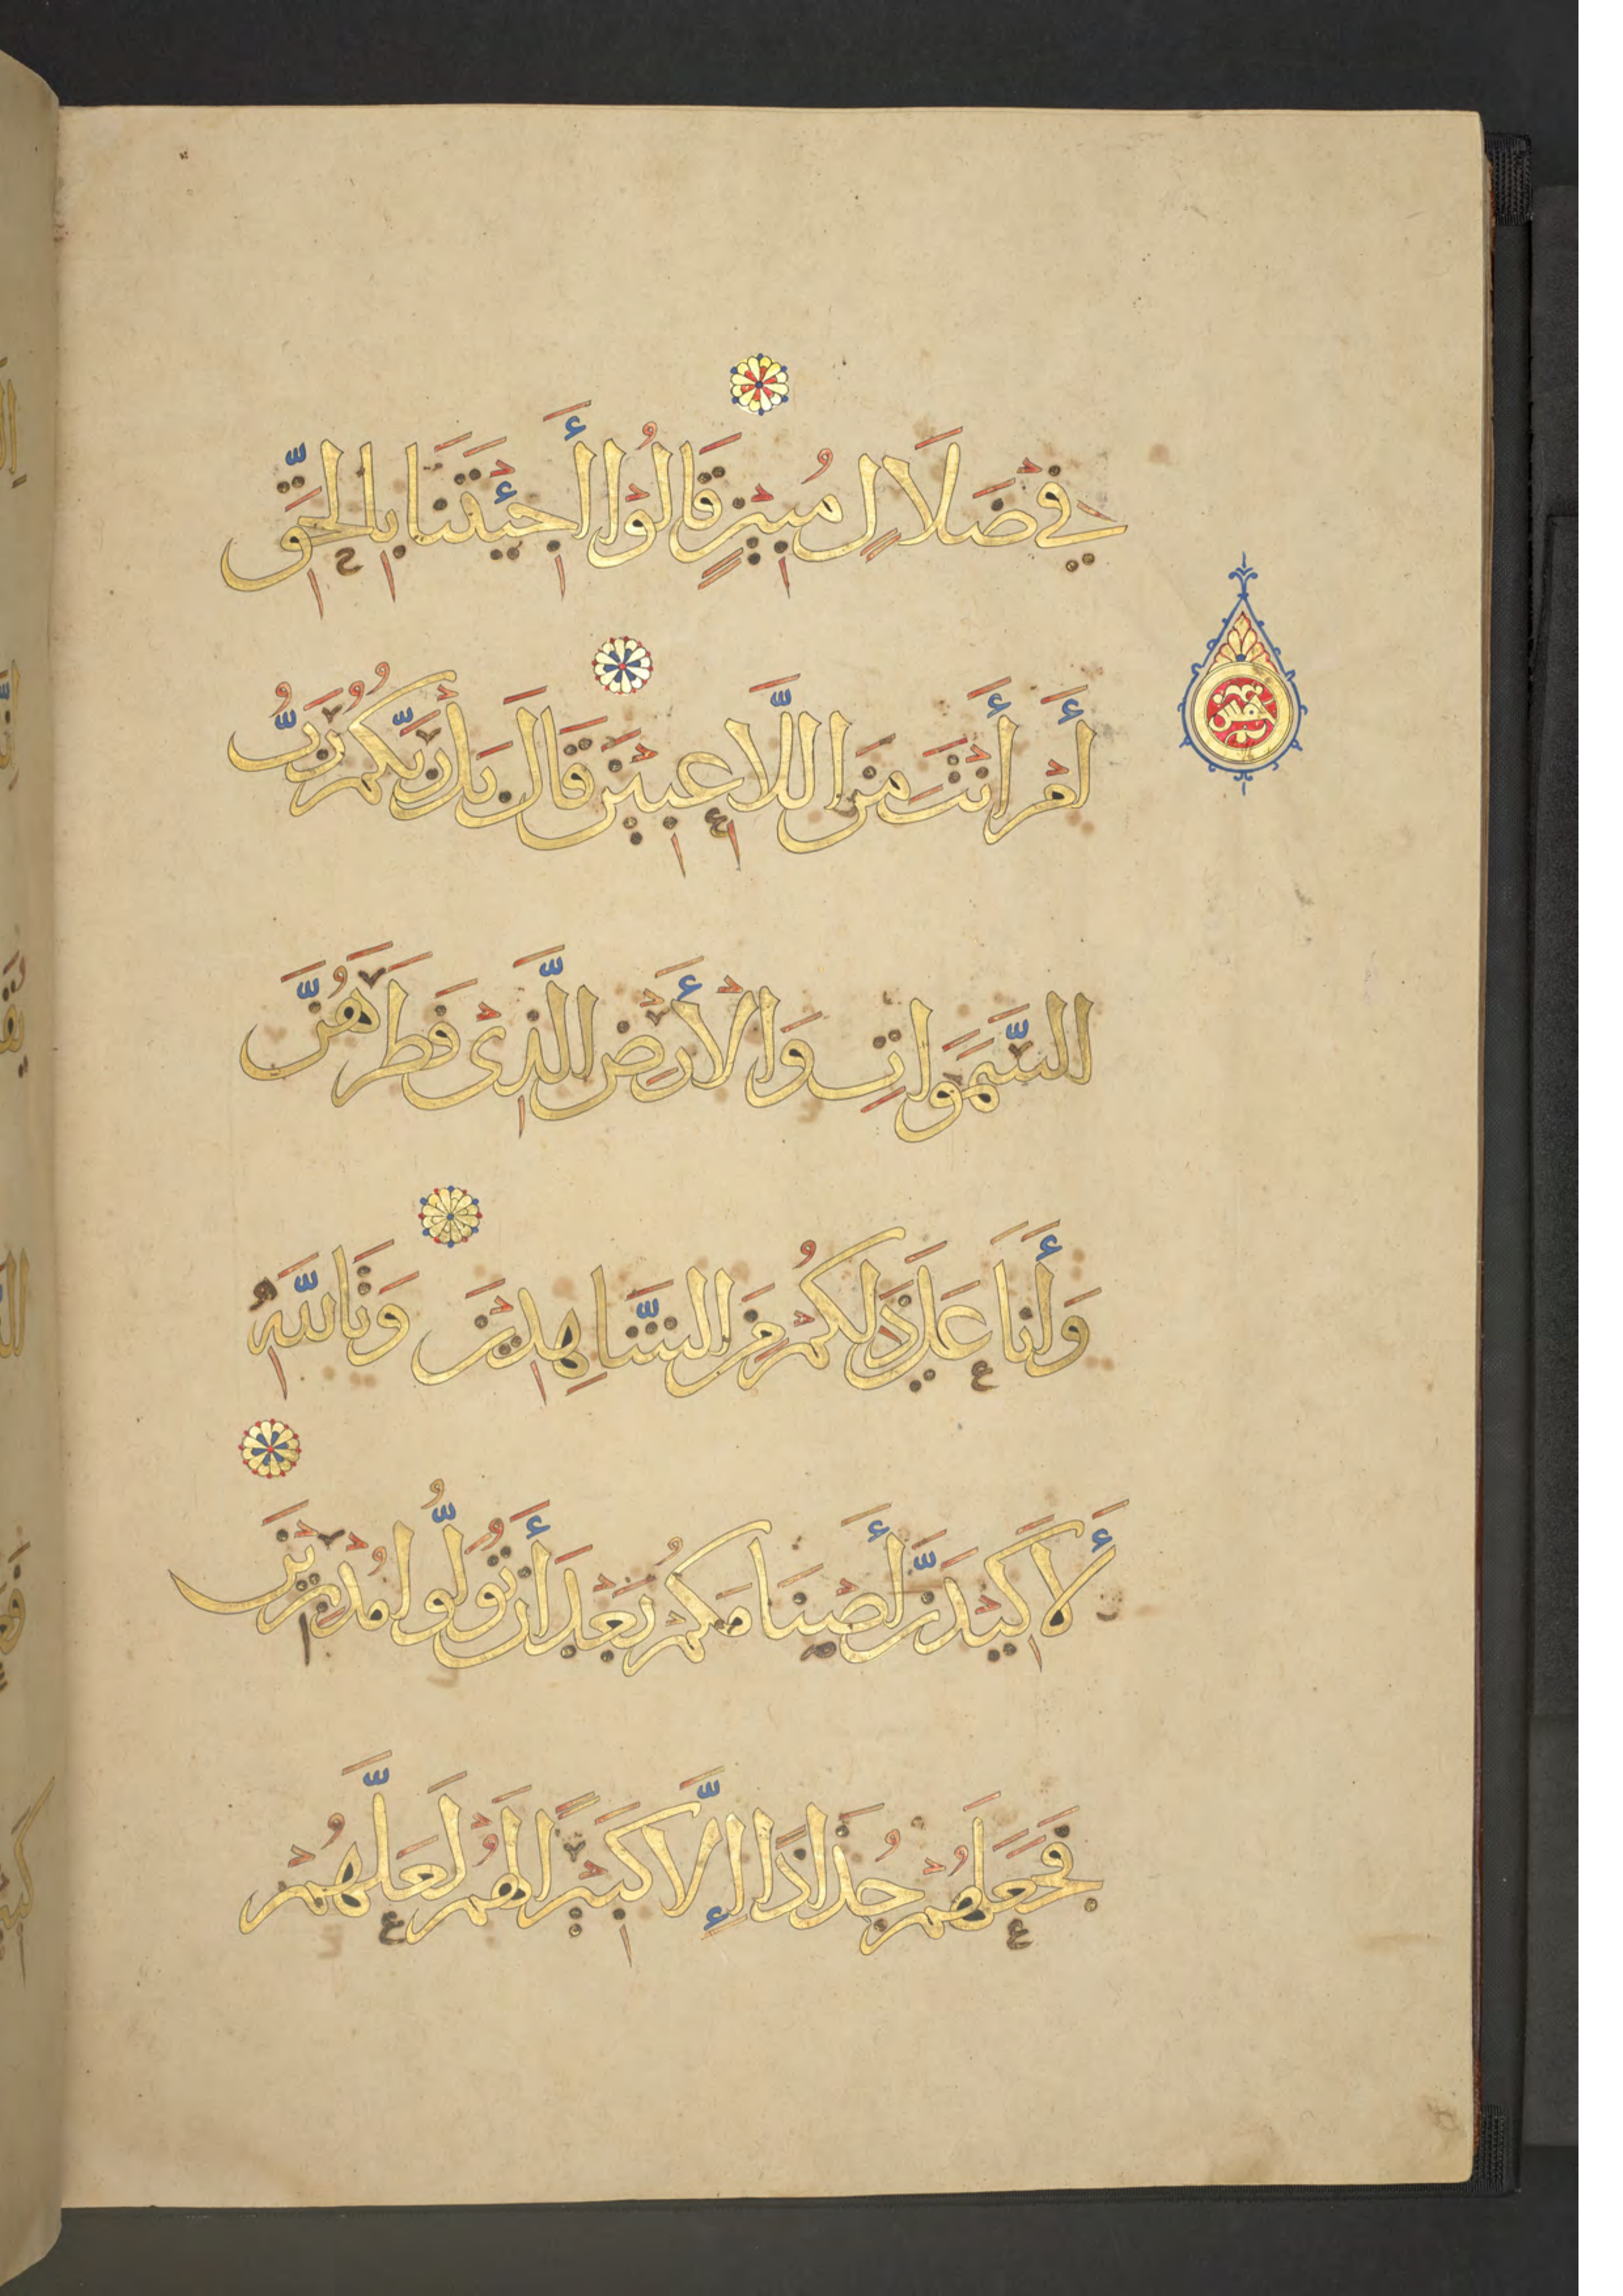 فِي ضَلَالٍ مُبِينٍ قَالُوْا أَجِئْتَنَا بِالْحَقِّ
أَمْ أَنْتَ مِنَ اللَّاعِبِيْنَ قَالَ بَل رَبُّكُمْ رَبُّ
خمس
السَّمَوَاتِ وَالْأَرْضِ الَّذِىْ فَطَرَهُنَّ
وَأَنَا عَلَي ذَلِكُمْ مِنَ الشَّاهِدِيْنَ وَتَاللَّهِ
لَأَكِيْدَنَّ أَصْنَامَكُمْ بَعْدَ أَن تُوَلُّوا مُدْبِرِيْنَ
فَجَعَلَهُمْ جُذَاذًا إِلَّا كَبِيْرًا لَهُمْ لَعَلَّهُمْ